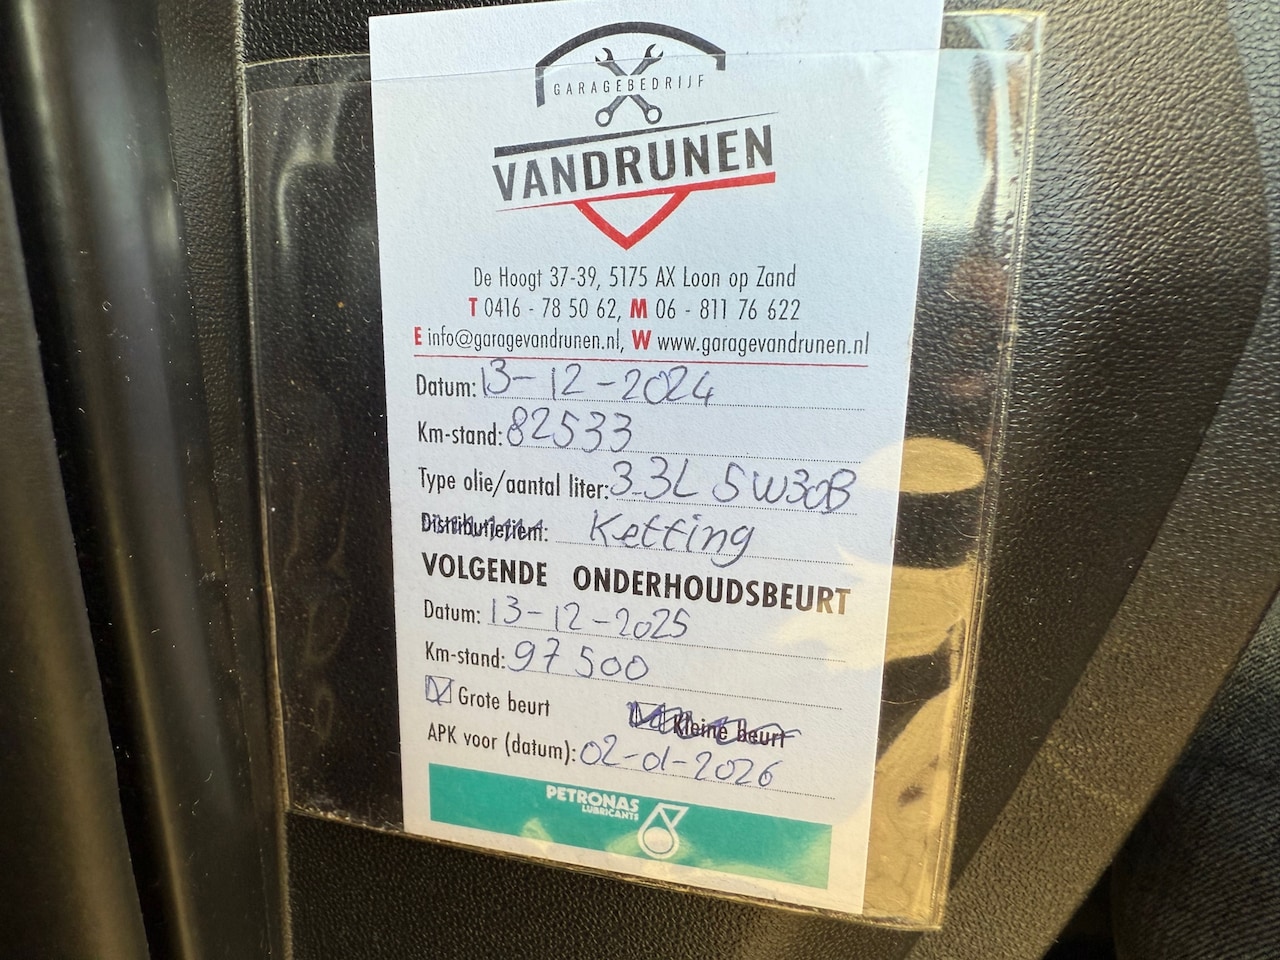 GARAGEBEDRIJF
VANDRUNEN
De Hoogt 37-39, 5175 AX Loon op Zand
T 0416 - 78 50 62, M 06 - 811 76 622
E info@garagevandrunen.nl, W www.garagevandrunen.nl
Datum: 13-12-2024
Km-stand: 82533
Type olie/aantal liter: 3.3L 5W30B
Distributieriem: Ketting
VOLGENDE ONDERHOUDSBEURT
Datum: 13-12-2025
Km-stand: 97500
Grote beurt Kleine beurt
APK voor (datum): 02-01-2026
PETRONAS
LUBRICANTS